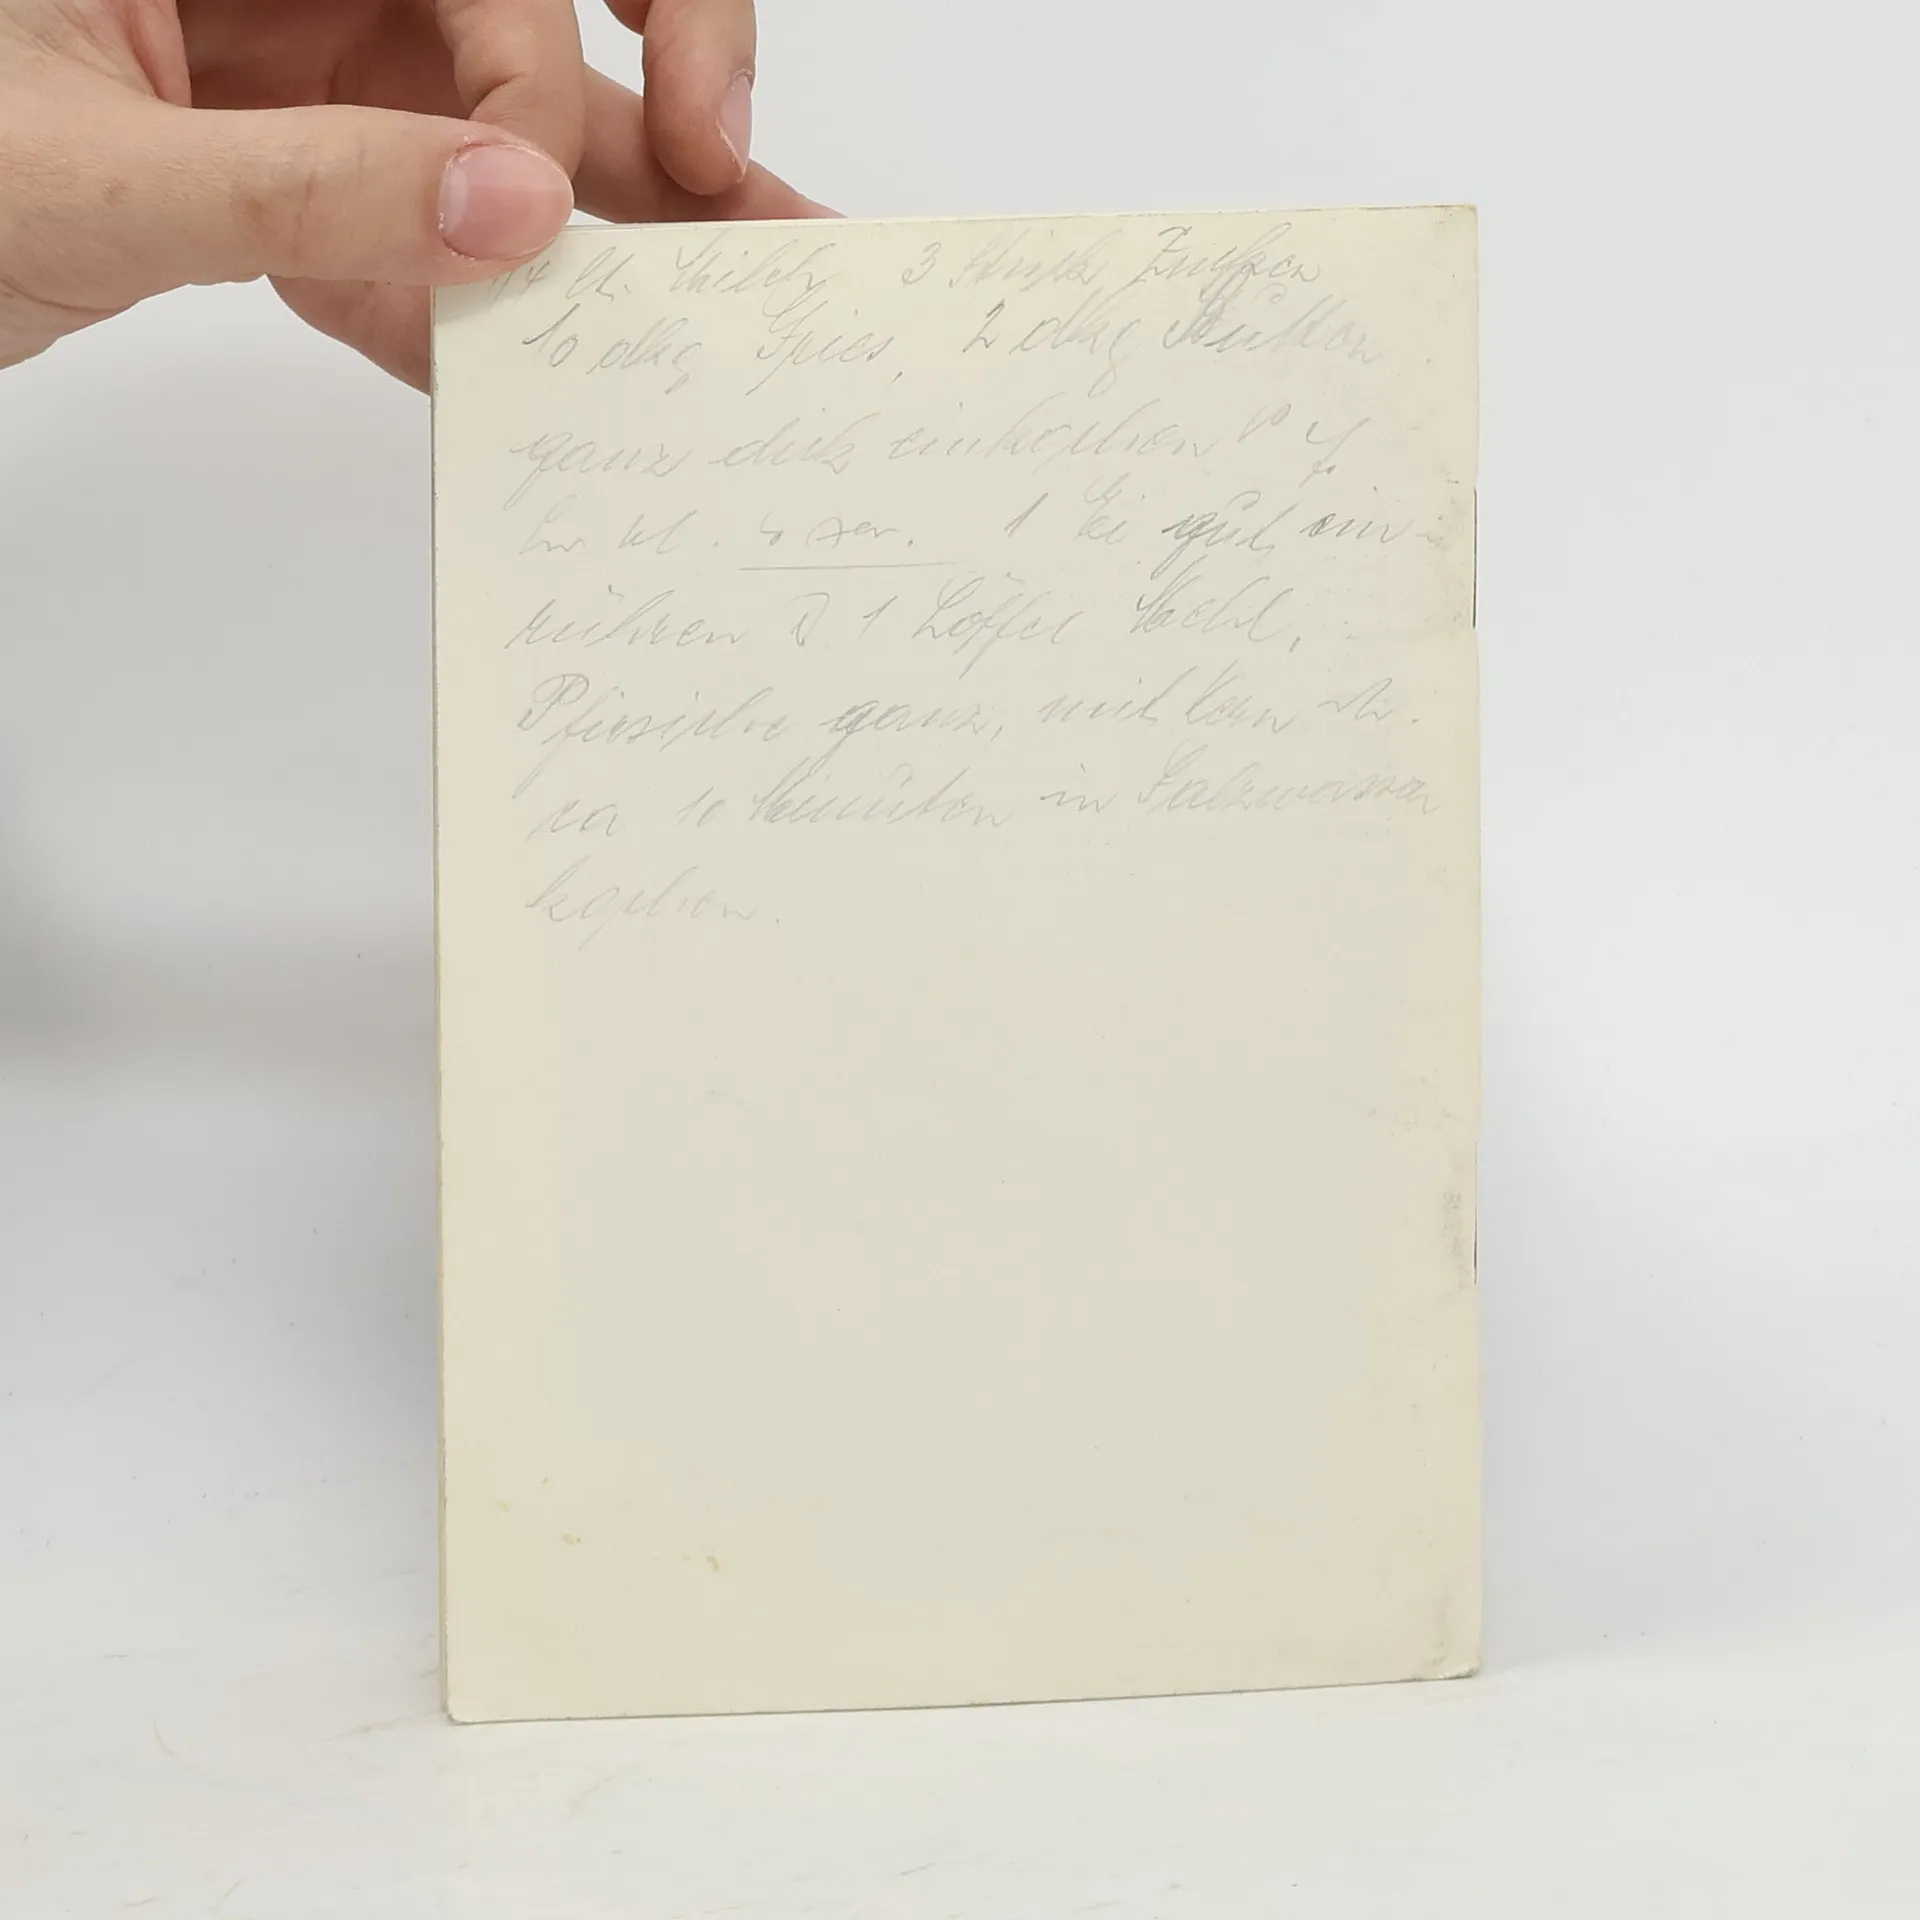 1/4 lt. Milch 3 Stück Zucker
10 dkg Gries, 2 dkg Butter
ganz dick einkochen
1 Ei gut ein
rühren 1 Löffel Mehl,
Pfirsiche ganz, mit Kern
ca 10 Minuten in Salzwasser
kochen.